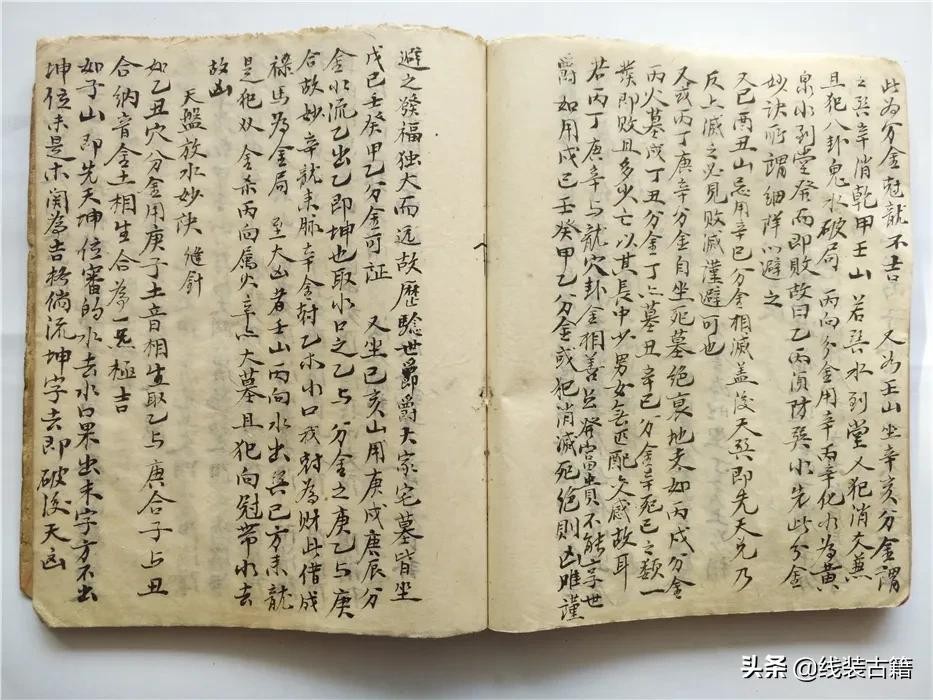 此为分金尅龍不吉　又如壬山坐辛亥分金謂
之巽辛消乾甲壬山　若巽水到堂又犯消灭兼
且犯八卦鬼水破局　丙向分金用辛丙辛化水為黄
泉水到堂癸而即敗故曰乙丙須防巽水先此分金
妙訣所謂细详以避之
又己酉丑山忌用辛巳分金相滅盖後天巽即先天兑乃
反上滅之必見敗滅謹避可也
又或丙丁庚辛分金自坐死墓绝衰地夫如丙戌分金
丙火墓戌丁丑分金丁亡墓丑辛巳分金辛死巳之類一
發即敗且多少亡以其長中少男女無匹配交感故耳
若丙丁庚辛与龍穴卦金相善只發富貴不能享世
爵如用戊己壬癸甲乙分金或犯消滅死绝則凶唯謹
避之發福独大而远故歷驗世爵爵大家宅墓皆坐
戊己壬癸甲乙分金可証　又坐己亥山用庚戌庚辰分
金水流乙出乙即坤也取水口之乙与分金之庚乙与庚
合故妙辛龍来脉辛金尅乙木水口我尅為财此借成
祿馬為金局　至大凶者壬山丙向水出巽巳方来龍
是犯双金杀丙向属火辛亡大墓且犯向冠带水去
故凶
天盤放水妙诀　缝針
如乙丑穴分金用庚子土音相生取乙与庚合子与丑
合納音金土相生合為一氣極吉
如子山即先天坤位審的水去水口果出未字方不出
坤位未是木阅為吉格倘流坤字去即破後天凶
头条 @线装古籍